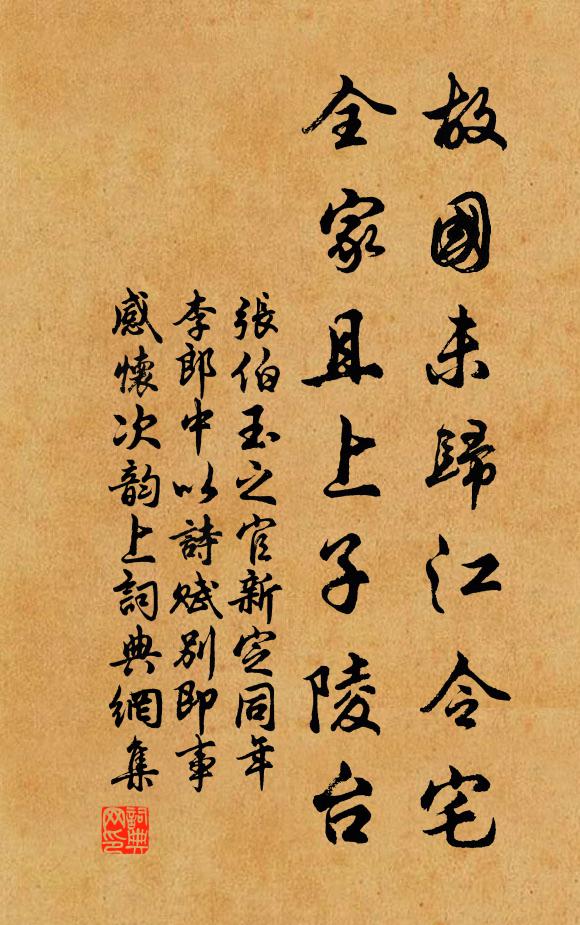 故國未歸江令宅
全家且上子陵台
張伯玉之官新定同年
李郎中以詩賦別即事
感懷次韵上詞典網集
詞典网印